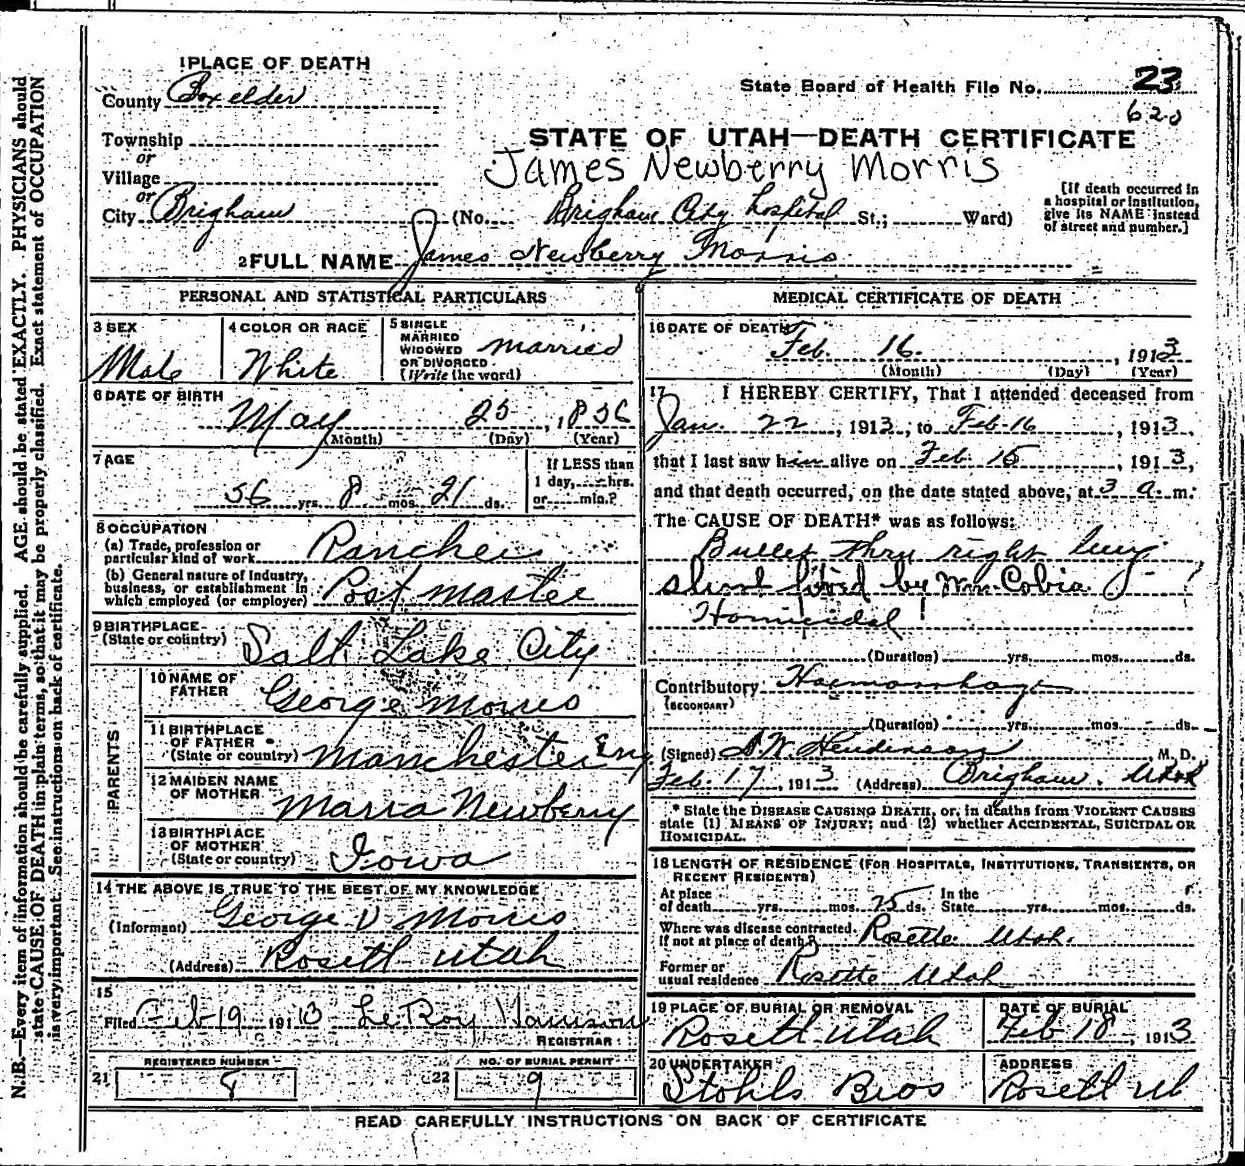 N.B.—Every item of information should be carefully supplied. AGE should be stated EXACTLY. PHYSICIANS should
state CAUSE OF DEATH in plain terms, so that it may be properly classified. Exact statement of OCCUPATION
is very important. See instructions on back of certificate.
1 PLACE OF DEATH
County Boxelder
State Board of Health File No. 23
620
Township
or
Village
or
City Brigham
STATE OF UTAH—DEATH CERTIFICATE
James Newberry Morris
(No. Brigham City hospital St.; Ward)
[If death occurred in
a hospital or institution,
give its NAME instead
of street and number.]
2 FULL NAME James Newberry Morris
PERSONAL AND STATISTICAL PARTICULARS
3 SEX
Male
4 COLOR OR RACE
White
5 SINGLE
MARRIED
WIDOWED
OR DIVORCED
(Write the word)
married
6 DATE OF BIRTH
May 25, 1856
(Month) (Day) (Year)
7 AGE
56 yrs. 8 mos. 21 ds.
If LESS than
1 day, hrs.
or min.?
8 OCCUPATION
(a) Trade, profession or
particular kind of work Rancher
(b) General nature of industry,
business, or establishment in
which employed (or employer) Post master
9 BIRTHPLACE
(State or country) Salt Lake City
PARENTS
10 NAME OF
FATHER George Morris
11 BIRTHPLACE
OF FATHER
(State or country) Manchester Eng
12 MAIDEN NAME
OF MOTHER Maria Newberry
13 BIRTHPLACE
OF MOTHER
(State or country) Iowa
14 THE ABOVE IS TRUE TO THE BEST OF MY KNOWLEDGE
(Informant) George V Morris
(Address) Rosett Utah
15
Filed Feb 19 1913 LeRoy
REGISTRAR
REGISTERED NUMBER
21 8
NO. OF BURIAL PERMIT
22 9
MEDICAL CERTIFICATE OF DEATH
16 DATE OF DEATH
Feb. 16. , 1913
(Month) (Day) (Year)
17 I HEREBY CERTIFY, That I attended deceased from
Jan. 22, 1913, to Feb-16, 1913,
that I last saw him alive on Feb. 15, 1913,
and that death occurred, on the date stated above, at 3 a. m.
The CAUSE OF DEATH* was as follows:
Bullet thru right lung
fired by Wm Cobia
Homicidal!
(Duration) yrs. mos. ds.
Contributory Haemorrhage
(SECONDARY)
(Duration) yrs. mos. ds.
(Signed) Henderson M. D.
Feb. 17, 1913 (Address) Brigham. Utah
* State the DISEASE CAUSING DEATH, or, in deaths from VIOLENT CAUSES
state (1) MEANS OF INJURY; and (2) whether ACCIDENTAL, SUICIDAL OR
HOMICIDAL.
18 LENGTH OF RESIDENCE (FOR HOSPITALS, INSTITUTIONS, TRANSIENTS, OR
RECENT RESIDENTS)
At place
of death yrs. mos. 25 ds. In the
State yrs. mos. ds.
Where was disease contracted,
if not at place of death? Rosette Utah.
Former or
usual residence Rosette Utah
19 PLACE OF BURIAL OR REMOVAL
Rosett Utah
DATE OF BURIAL
Feb 18, 1913
20 UNDERTAKER
Stohls Bros
ADDRESS
Rosett Ut
READ CAREFULLY INSTRUCTIONS ON BACK OF CERTIFICATE